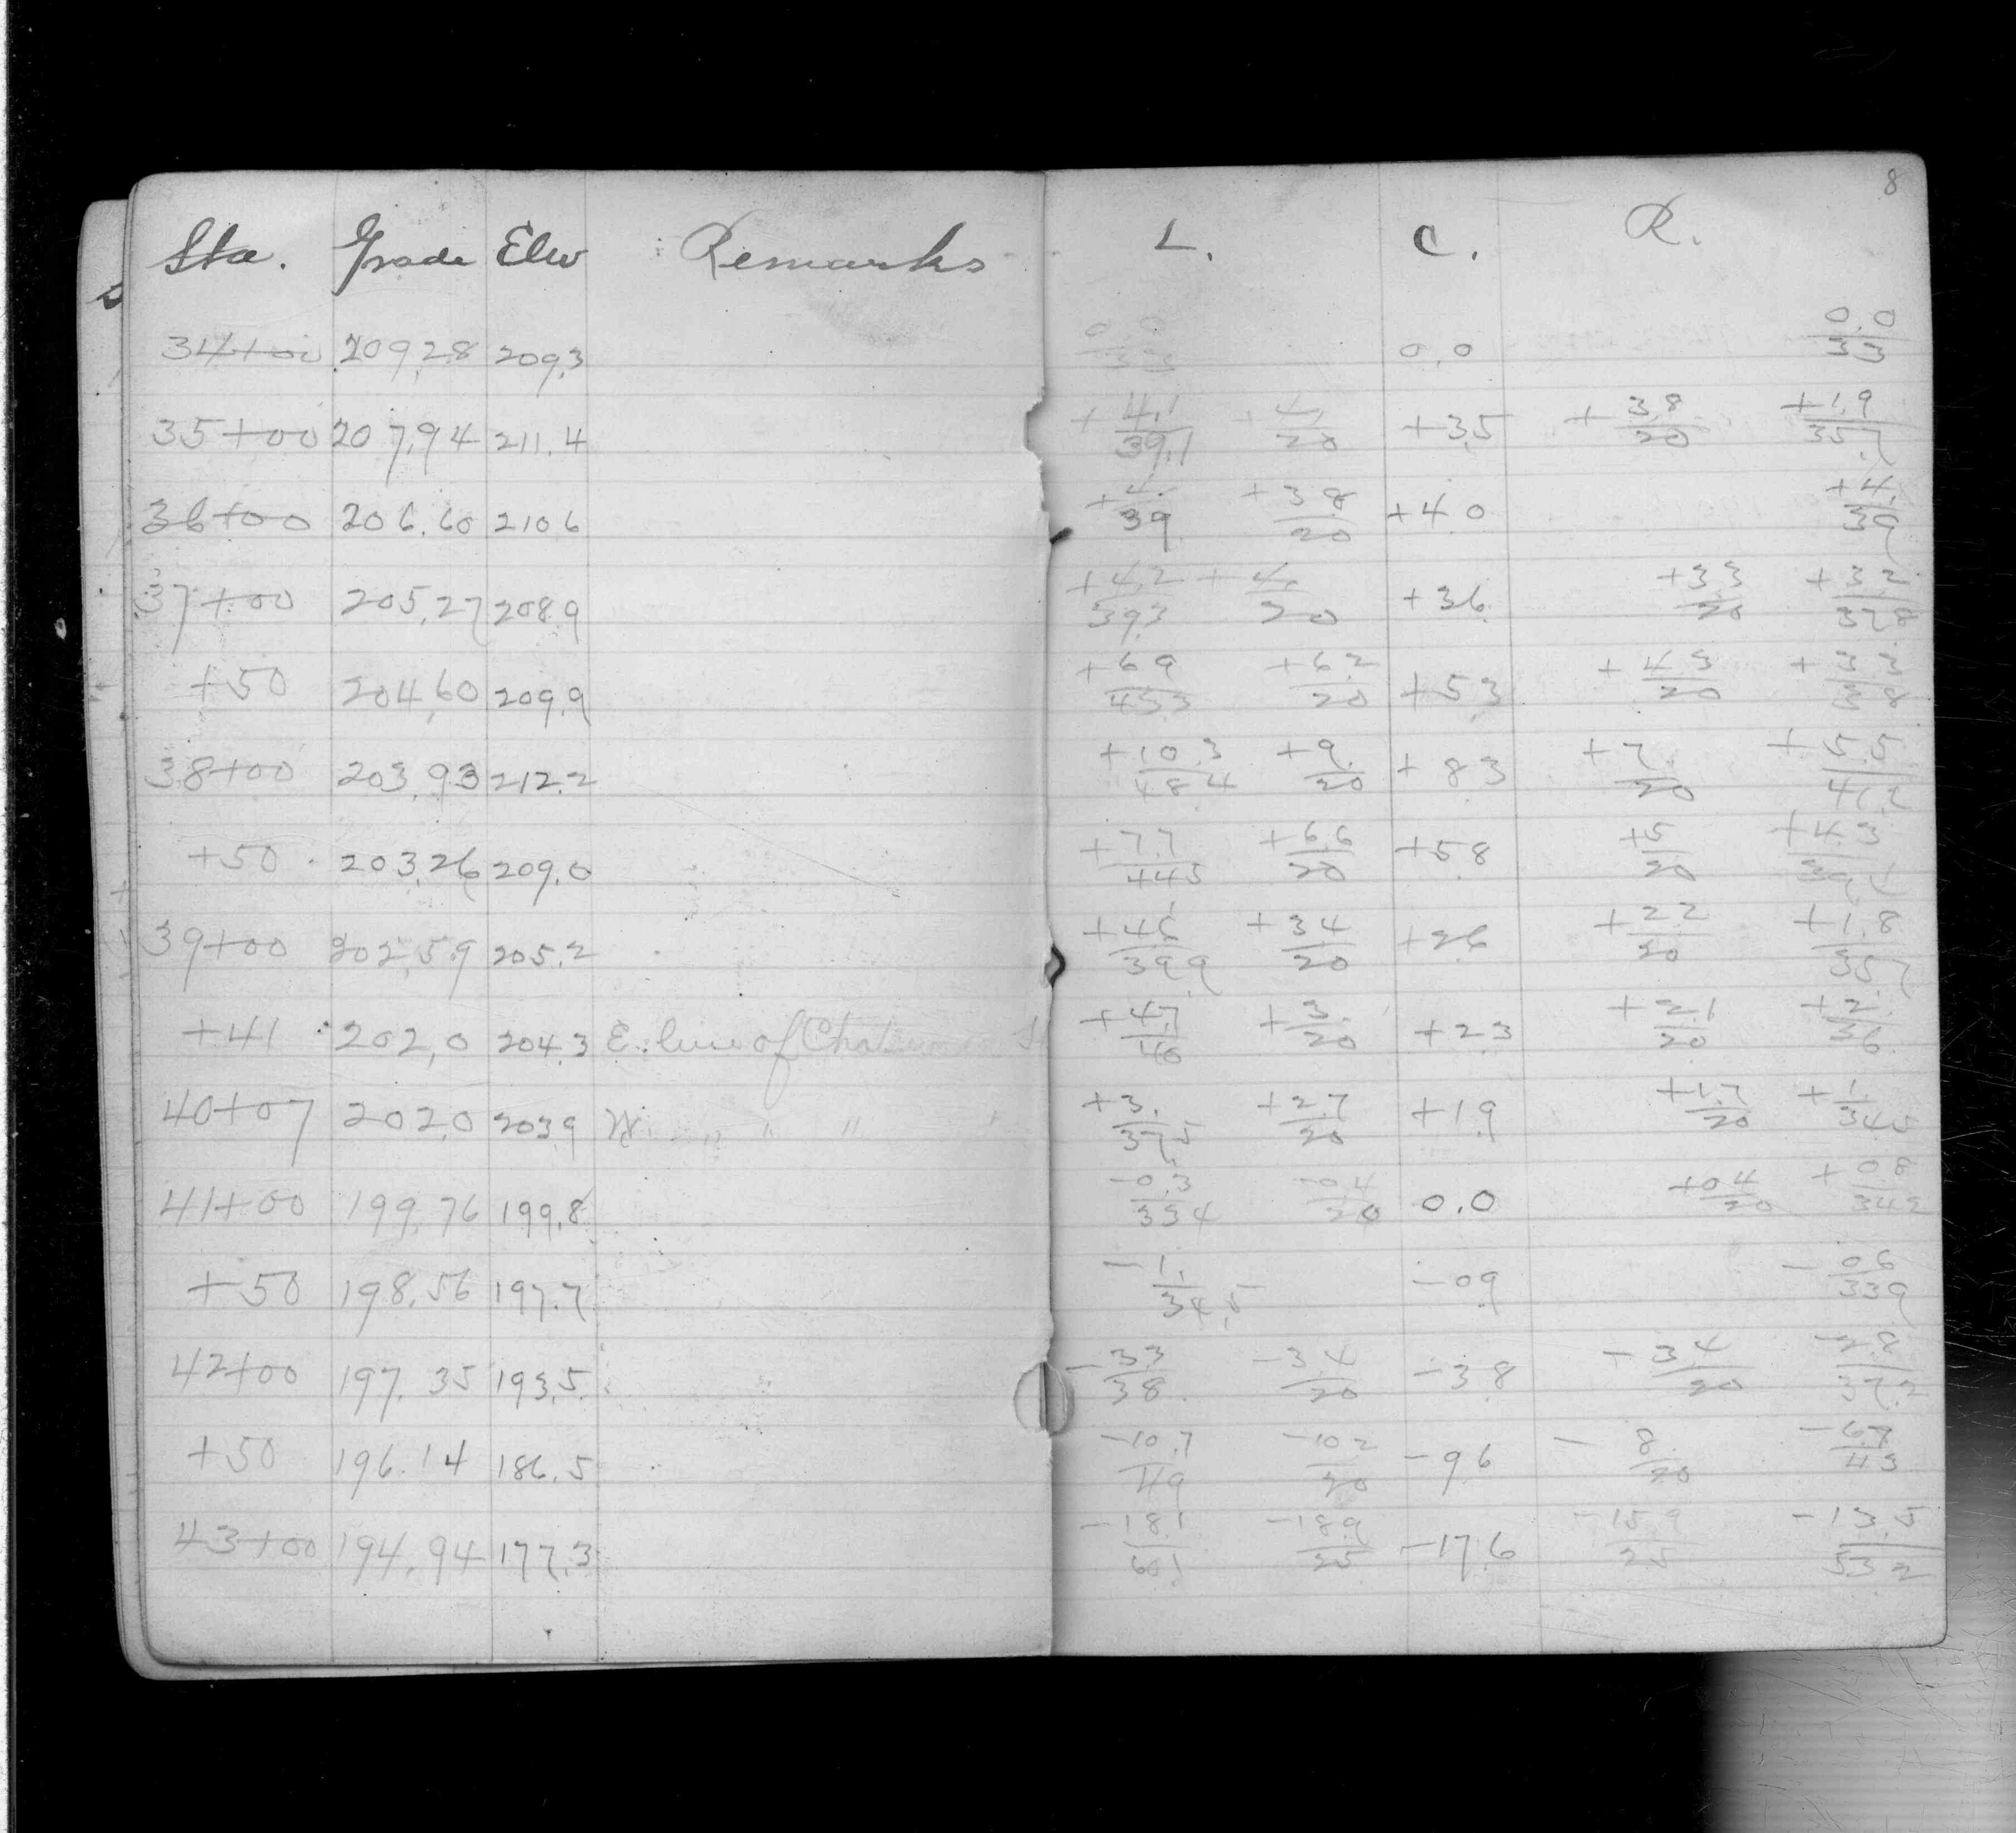 8
Sta. Grade Elev Remarks L. C. R.
34+00 209.28 209.3 0.0/33 0.0 0.0/33
35+00 207.94 211.4 +4.1/39.1 +4./20 +3.5 +3.8/20 +1.9/35.7
36+00 206.60 210.6 +4./39 +3.8/20 +4.0 +4./39
37+00 205.27 208.9 +4.2/39.3 +4./20 +3.6 +3.3/20 +3.2/37.8
+50 204.60 209.9 +6.9/43.3 +6.2/20 +5.3 +4.3/20 +3.3/38
38+00 203.93 212.2 +10.3/48.4 +9./20 +8.3 +7./20 +5.5/41.2
+50 203.26 209.0 +7.7/44.5 +6.6/20 +5.8 +5/20 +4.3/39.4
39+00 202.59 205.2 +4.6/39.9 +3.4/20 +2.6 +2.2/20 +1.8/35.7
+41 202.0 204.3 E. line of +4.7/40 +3./20 +2.3 +2.1/20 +2./36
40+07 202.0 203.9 W. " " " +3./37.5 +2.7/20 +1.9 +1.7/20 +1/34.5
41+00 199.76 199.8 -0.3/33.4 -0.4/20 0.0 +0.4/20 +0.8/34.2
+50 198.56 197.7 -1./34.5 -0.9 -0.6/33.9
42+00 197.35 193.5 -3.3/38 -3.4/20 -3.8 -3.4/20 -2.8/37.2
+50 196.14 186.5 -10.7/49 -10.2/20 -9.6 -8./20 -6.7/43
43+00 194.94 177.3 -18.1/60.1 -18.9/25 -17.6 -15.9/25 -13.5/53.2